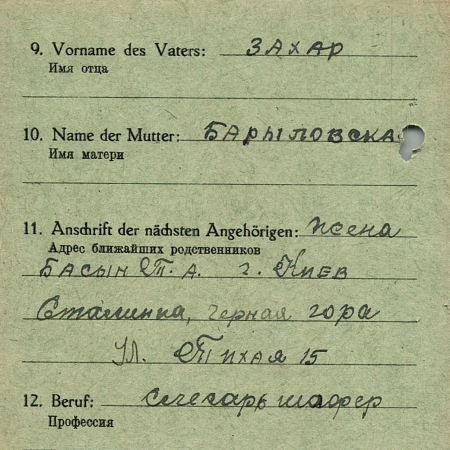 9. Vorname des Vaters: ЗАХАР
Имя отца
10. Name der Mutter: БАРЫЛОВСКАЯ
Имя матери
11. Anschrift der nächsten Angehörigen: жена
Адрес ближайших родственников
БАСЫН Т. А. г. КИЕВ
Сталинка, черная гора
Ул. Тихая 15
12. Beruf: слесарь шофер
Профессия